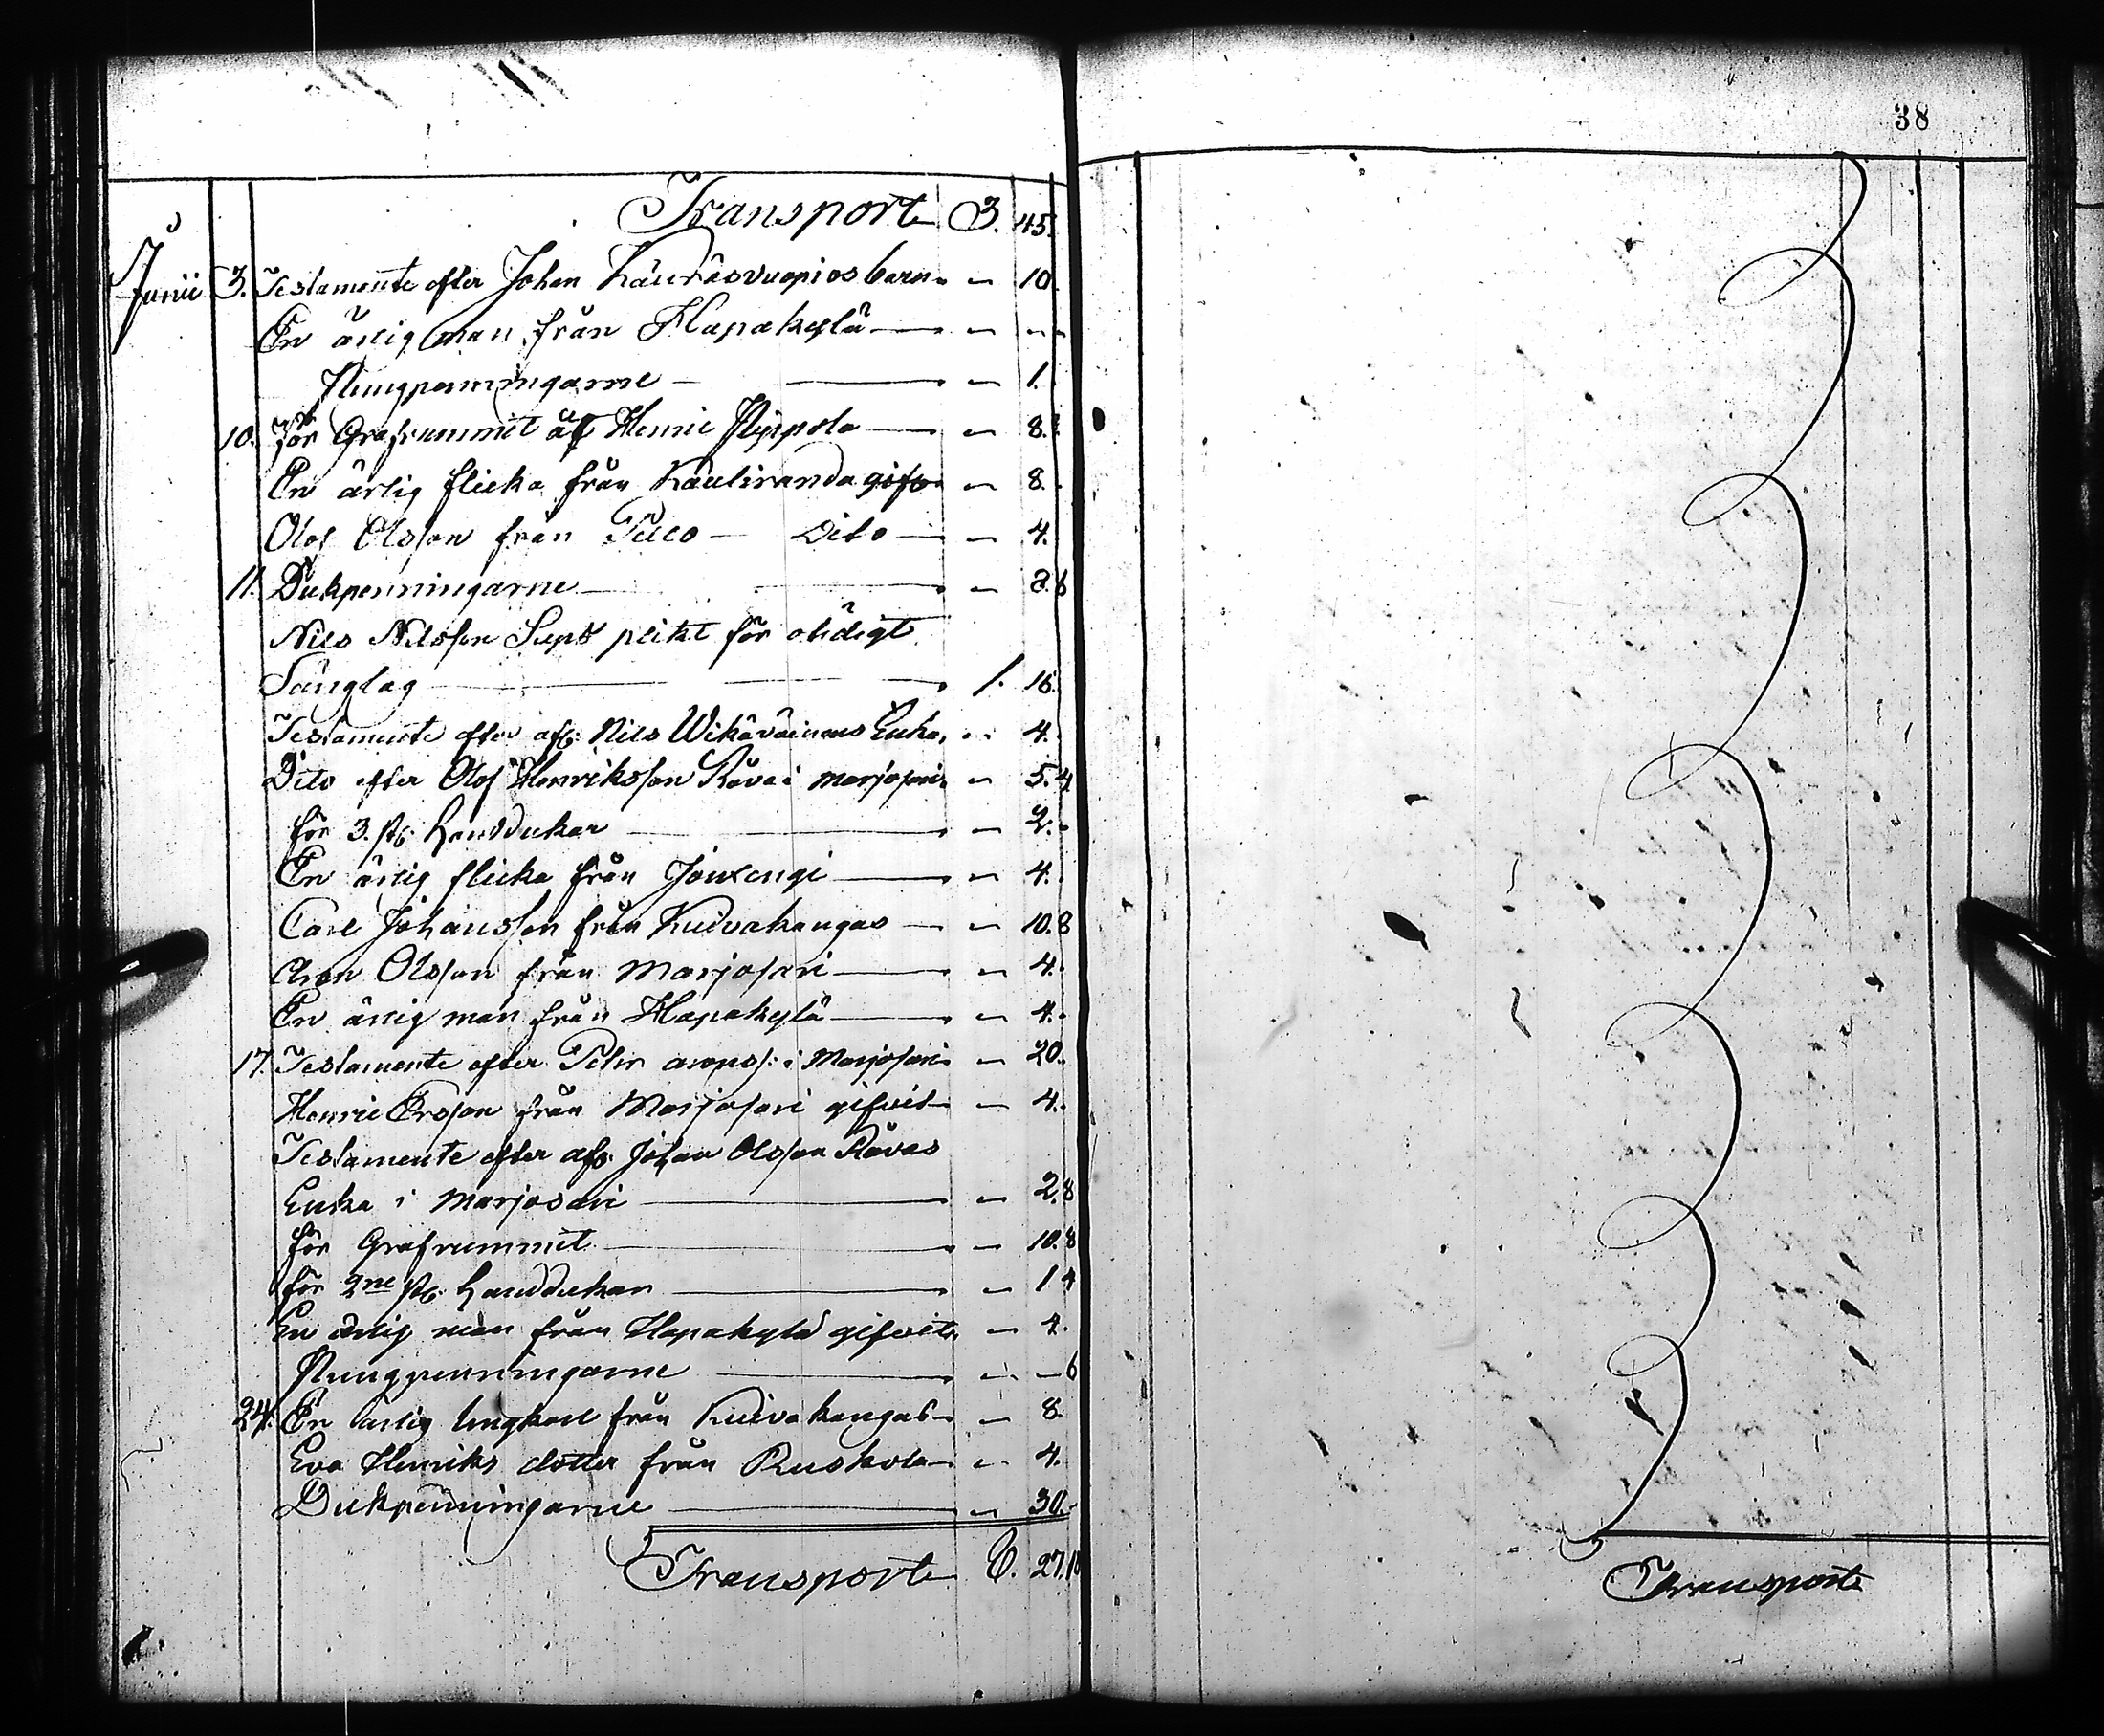 38
Transport 3. 45.
Junii 3. Testamente efter Johan Käuräsvuopios barn " 10.
En ärlig man från Hapakylä " "
Pungpenningarne " 1.
10. för Grafrummet åt Henric Pippola " 8.
En ärlig flicka från Kauliranda gifv. " 8.
Olof Olsson från Dito " 4.
11. Dukpenningarne " 8. 6
Nils Nilsson plikt för olidigt
Sänglag 1. 16.
Testamente efter afl. Nils Enka " 4.
Dito efter Olof Henriksson Räva i Marjosari " 5. 4
för 3. st. handdukar " 2.
En ärlig flicka från Jouxengi " 4.
Carl Johansson från Kuivakangas " 10. 8
Aron Olsson från Marjosari " 4.
En ärlig man från Hapakylä " 4.
17. Testamente efter Pehr aronss: i Marjosari " 20.
Henric Ersson från Marjosari gifvit " 4.
Testamente efter afl. Johan Olsson Rävas
Enka i Marjosari " 2. 8
för Grafrummet " 10. 8
för 2ne st. handdukar " 1 4
En ärlig man från Hapakylä gifvit " 4.
Pungpenningarne " — 6
24. En ärlig Ungkarl från Kuivakangas " 8.
Eva Henriks dotter från Ruskola " 4.
Dukpenningarne " 30.
Transport 6. 27.
Transport